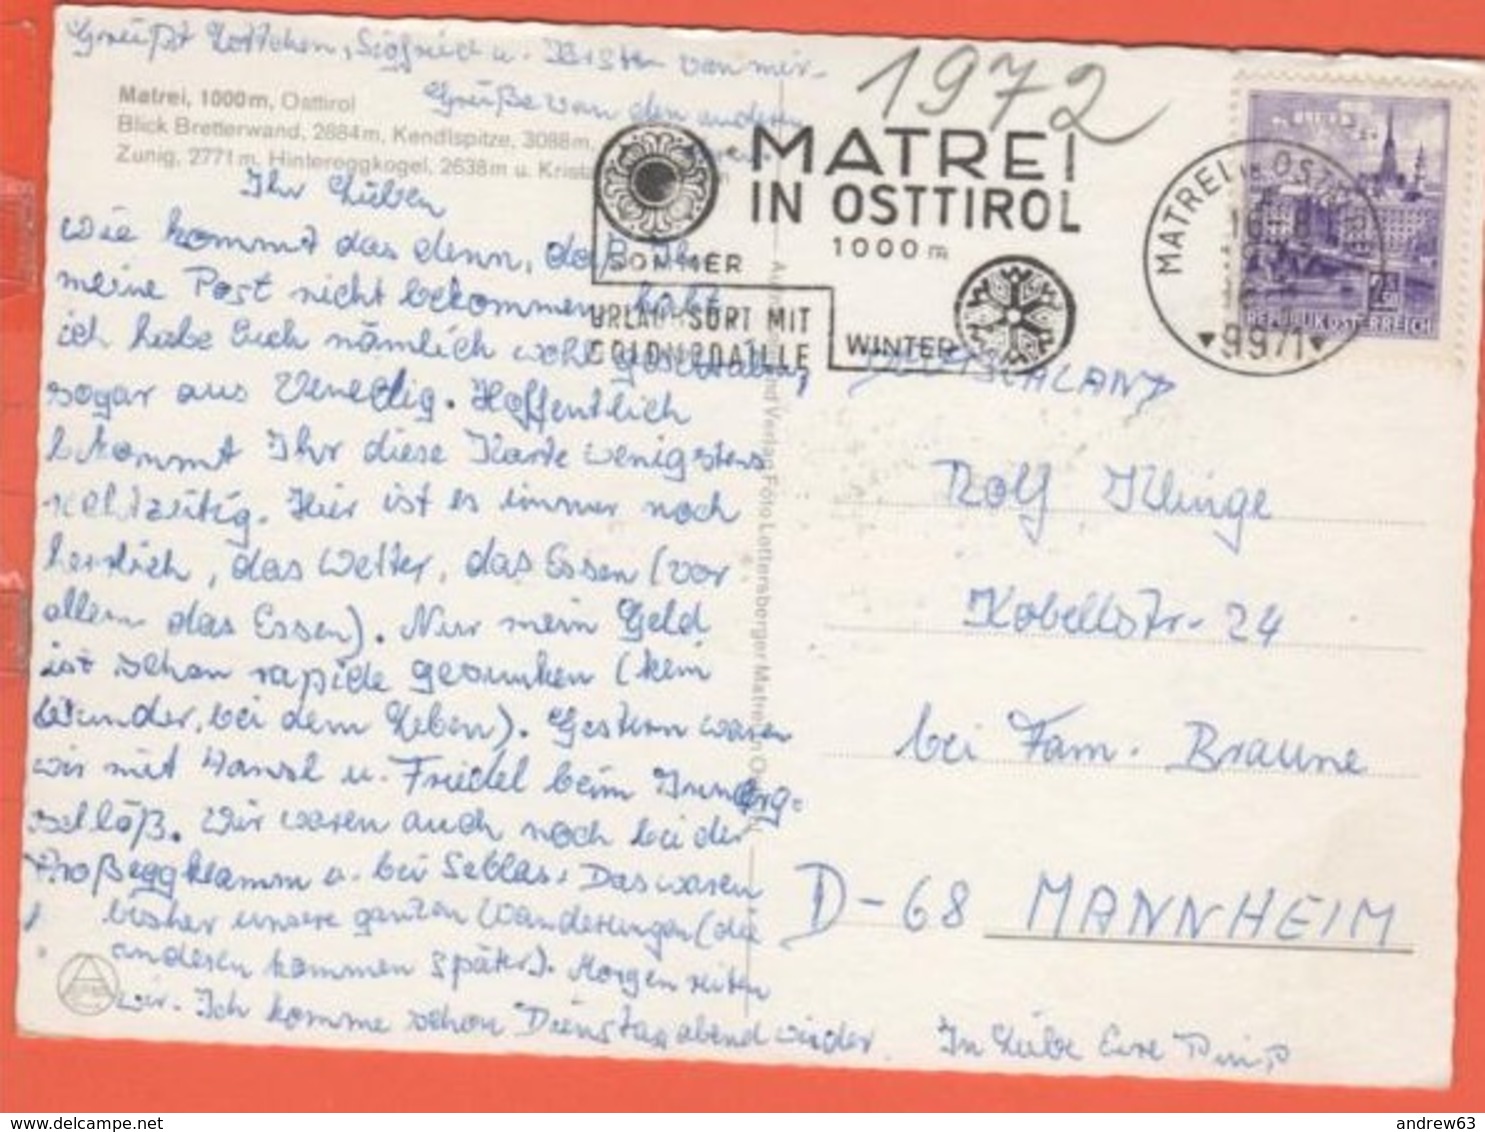 Grüßt Lottchen, Siegfried u. Kirsten von mir.
Grüße von den anderen
Matrei, 1000m, Osttirol
Blick Bretterwand, 2884m, Kendlspitze, 3088m,
Zunig, 2771m, Hintereggkogel, 2638m u. Krista
Ihr Lieben
wie kommt das denn, daß Ihr
meine Post nicht bekommen habt
ich habe Euch nämlich wohl geschrieben,
sogar aus Venedig. Hoffentlich
bekommt Ihr diese Karte wenigstens
rechtzeitig. Hier ist es immer noch
herrlich, das Wetter, das Essen (vor
allem das Essen). Nur mein Geld
ist schon rapide gesunken (kein
Wunder, bei dem Leben). Gestern waren
wir mit Hansl u. Friedel beim
schlöß. Wir waren auch noch bei der
Proßeggklamm u. bei Seblas. Das waren
bisher unsere ganzen Wanderungen (die
anderen kommen später). Morgen reiten
wir. Ich komme schon Dienstag abend wieder.
In Liebe Eure
1972
MATREI
IN OSTTIROL
1000 m
SOMMER
URLAUBSORT MIT
GOLDMEDAILLE
WINTER
MATREI in OSTTIROL
9971
REPUBLIK ÖSTERREICH
DEUTSCHLAND
Rolf Klinge
Kobellstr. 24
bei Fam. Braune
D-68 MANNHEIM
und Verlag Foto Lottersberger Matrei in
delcampe.net
andrew63